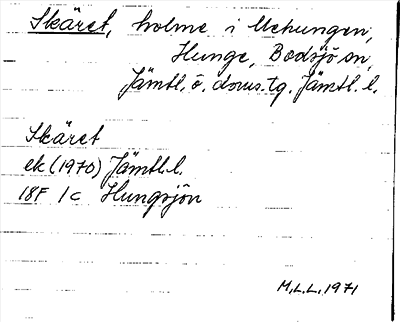 Skäret, holme i Uchungen,
Hunge, Bodsjö sn,
Jämtl. ö. doms.tg. Jämtl. l.
Skäret
ek (1970) Jämtl.l.
18F 1c Hungsjön
M.L.L. 1971